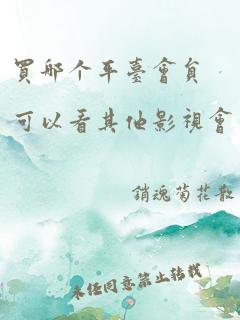 買哪个平臺會員
可以看其他影視會
銷魂菊花散
未经同意禁止转载